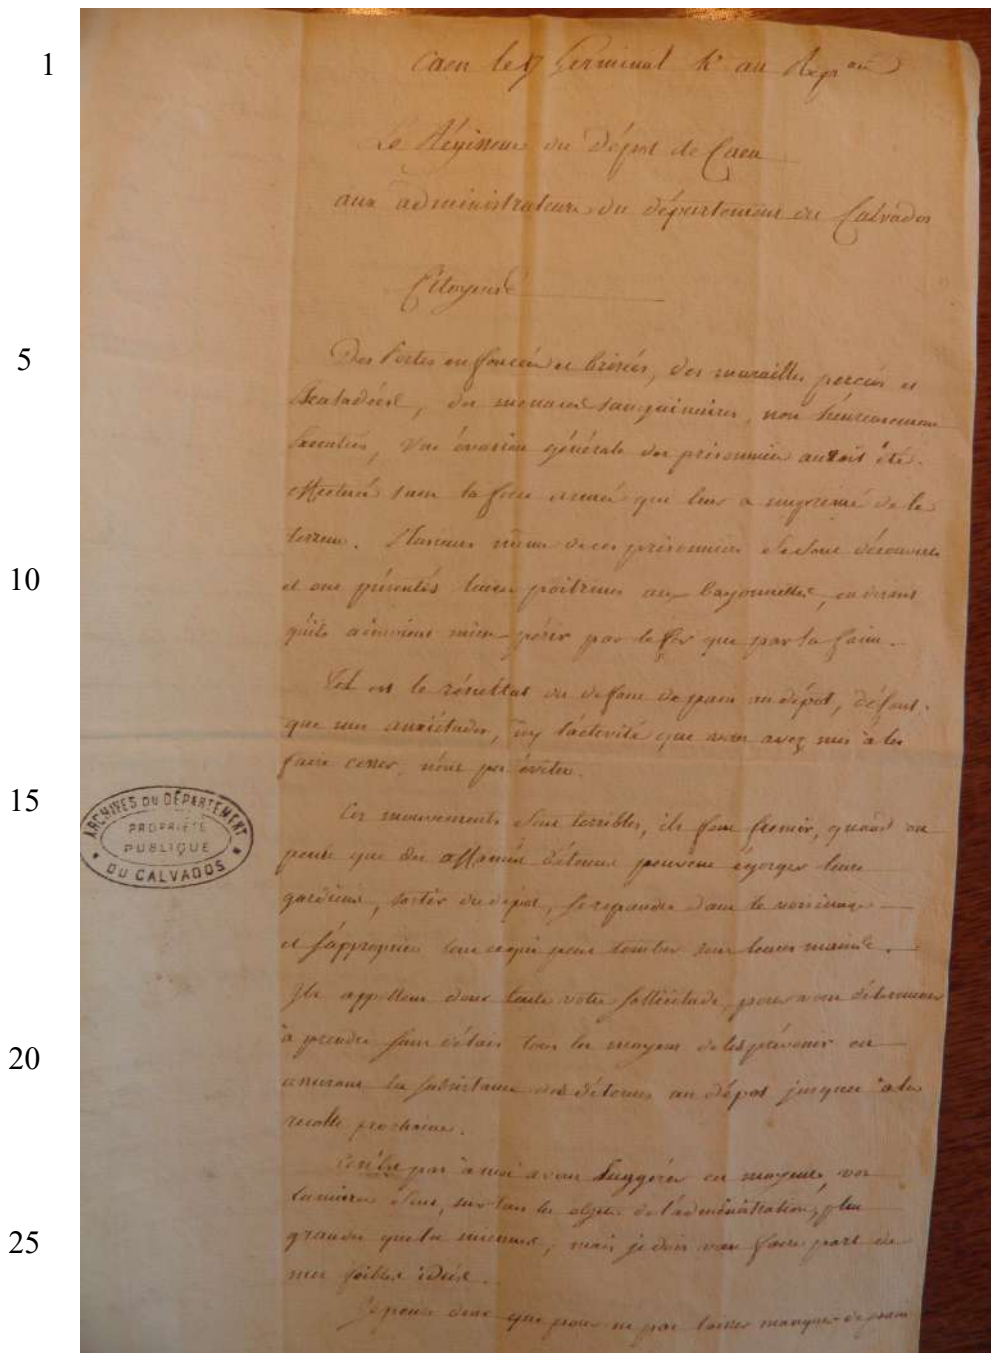 1
Caen le 17 Germinal
Le Régisseur du Dépôt de Caen
aux administrateurs du département du Calvados
Citoyens
5
Des Portes enfoncées et brisées, des murailles percées et
Escaladées, des menaces sanguinaires, non heureusement
Executées, Une évasion générale des prisonniers auroit été
effectuée sans la force armée qui leur a imprimé de la
terreur. Plusieurs même de ces prisonniers se sont découverts
10
et ont présentés leurs poitrines aux bayonnettes, en disant
qu'ils aimoient mieux périr par le fer que par la faim.
Tel est le résultat du defaut de pain au dépôt, défaut
que mes anxiétudes, ny l'activité que vous avez mis à les
faire cesser, n'ont pu éviter.
15
ARCHIVES DU DÉPARTEMENT
PROPRIÉTÉ
PUBLIQUE
DU CALVADOS
Ces mouvements sont terribles, ils font fremir, quand on
pense que des affamés détenus peuvent égorger leurs
gardiens, sortir du dépôt, se repandre dans le voisinage
et s'approprier tout ce qui peut tomber sous leurs mains.
Ils appellent donc toute votre sollicitude, pour vous déterminer
20
à prendre sans délais tous les moyens de les prévenir en
assurant la subsistance des détenus au dépôt jusques à la
recolte prochaine.
Ce n'est pas à moi a vous Suggérer ces moyens, vos
lumieres sont, sur tous les objets de l'administration, plus
25
grandes que les miennes, mais je dois vous faire part de
mes foibles idées.
Je pense donc que pour ne pas laisser manquer de pain